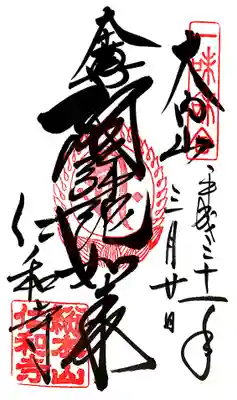 一味和合
大内山
平成三十一年
三月廿日
本尊
阿弥陀如来
仁和寺
総本山
仁和寺